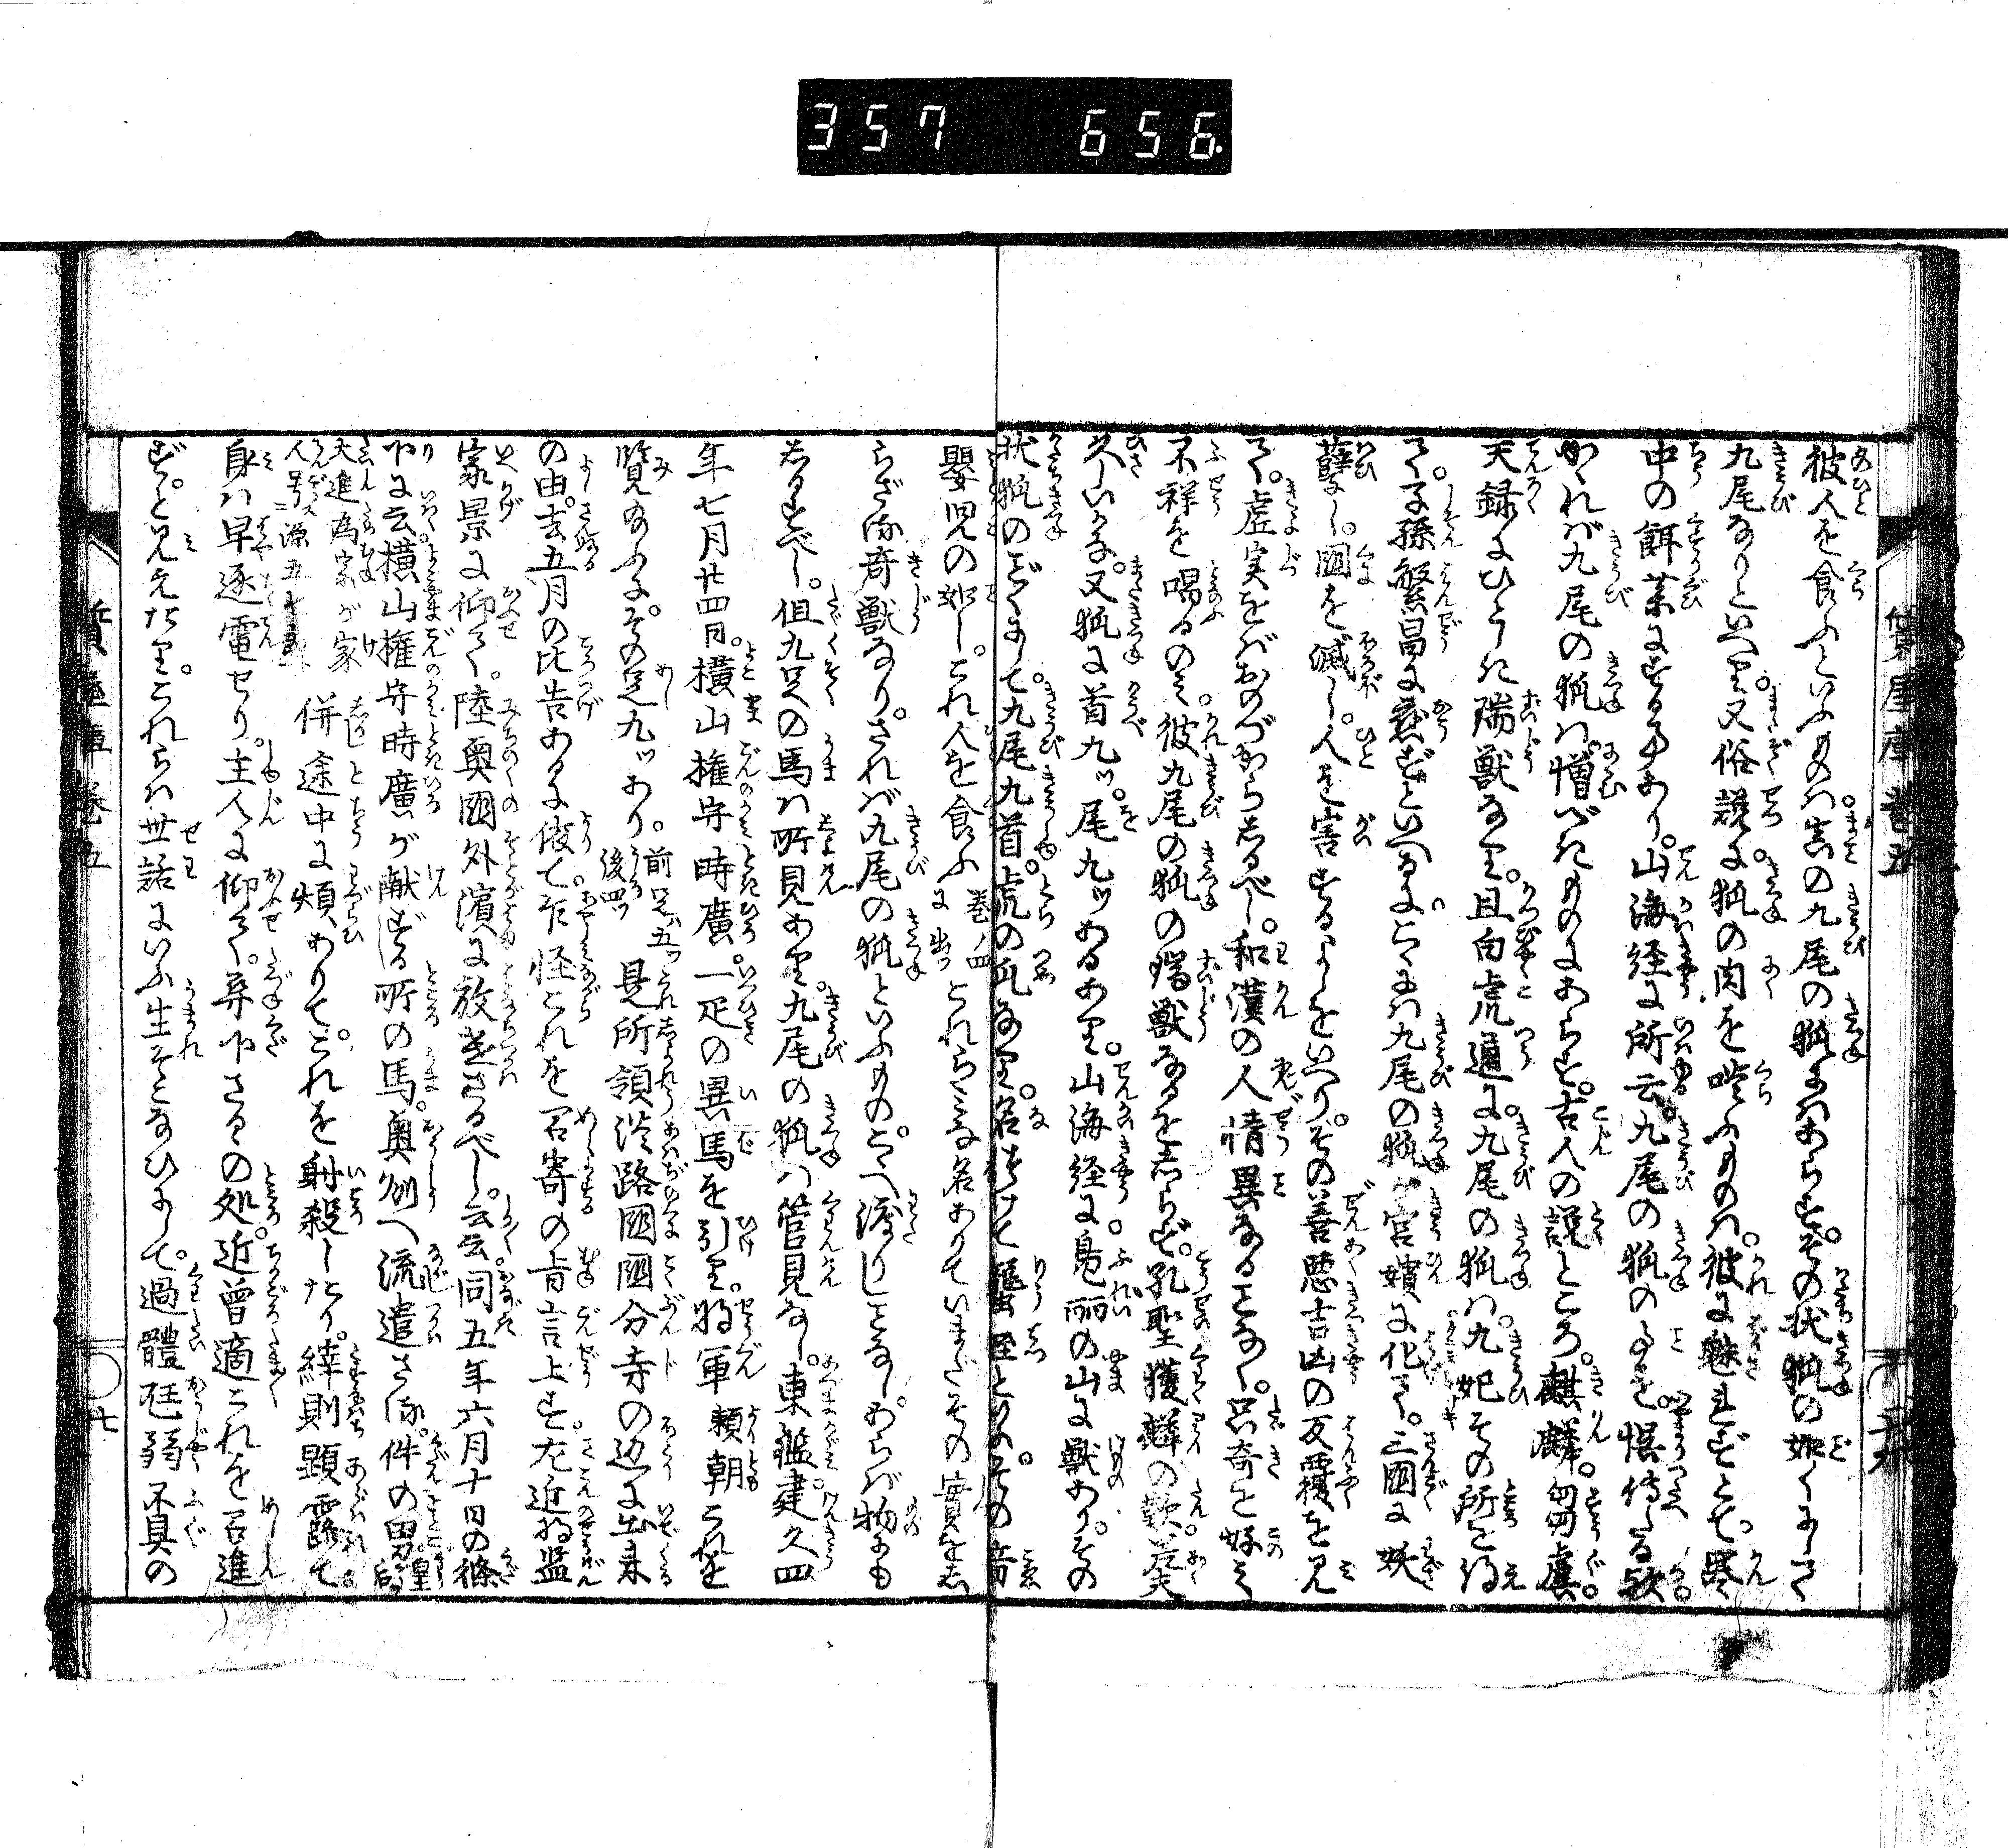 357 656.
質屋庫巻五
彼人を食ふといふものは真の九尾の狐にはあらず。その状狐の如くにして
九尾なりといへり。又俗説に狐の肉を啖ふものは。彼に魅れずとて。
中の餌薬にする事あり。山海経に所云。九尾の狐の事を。誤伝たる歟
かゝれば九尾の狐は。憎べきものにあらず。古人の説ところ。麒麟。騶虞。
天録にひとしき瑞獣なり。且白虎通に。九尾の狐は。九妃その所を得
て。子孫繁昌に象どといへるに。こゝには九尾の狐宮嬪に化て。三國に妖
孽し。國を滅し。人を害するよしをいへり。その善悪吉凶の反覆を見
て。虚実をばおのづから知るべし。和漢の人情異なることなく。只奇を好て
不祥を唱るのミ。彼九尾の狐の瑞獣なるをしらず。孔聖獲麟の歎。
久しいかな。又狐に首九ッ。尾九ッあるあり。山海経に凫麗の山に獣あり。その
状狐のごとくにして。九尾九首。虎の爪なり。名をつけて蠪蛭といふ。その音
嬰児の如し。これ人を食ふ 巻ノ四に出ッ これらはミな名ありていまだその實をし
らざる奇獣なり。されば九尾の狐といふもの。こゝへ渡りしことなし。あらば物にも
しるすべし。但九足の馬は所見あり。九尾の狐は管見なし。東鑑建久四
年七月廿四日。横山権守時廣。一疋の異馬を引り。将軍頼朝これを
覧給ふに。その足九ッあり。前足五ッ後四ッ 是所領淡路國國分寺の辺に出来
の由。去五月の比告あるに依て。乍怪これを召寄の旨言上す。左近将監
家景に仰て。陸奥國外濱に放遣さるべし。云云同五年六月十日の條
下に云横山権守時廣が献ずる所の馬。奥州へ流遣さる。件の男 皇后
大進為家が家人号ス源五七郎ト 併途中に煩ありて。これを射殺したり。縡則顕露て
身は早逐電せり。主人に仰て。尋下さるゝの処。近曽適これを召進
ず。と見えたり。これらは世話にいふ生そこなひにして。過體尫弱不具の
質屋庫巻五
七